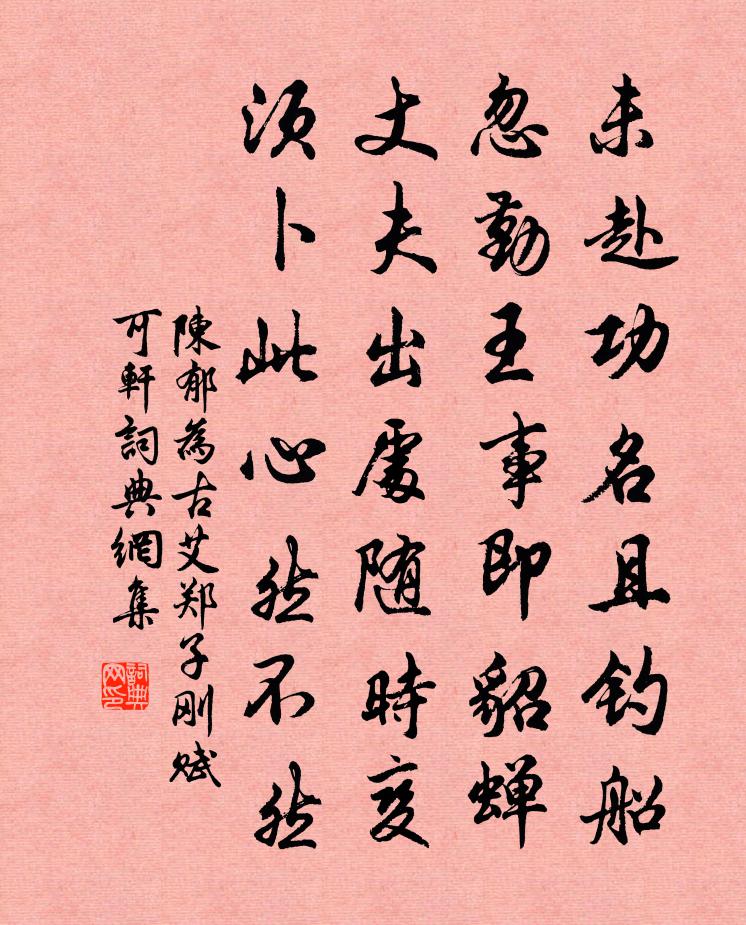 未赴功名且钓船
忽勤王事即貂蝉
丈夫出處随時变
须卜此心然不然
陳郁為古艾郑子刚赋
可軒詞典網集
詞典网印